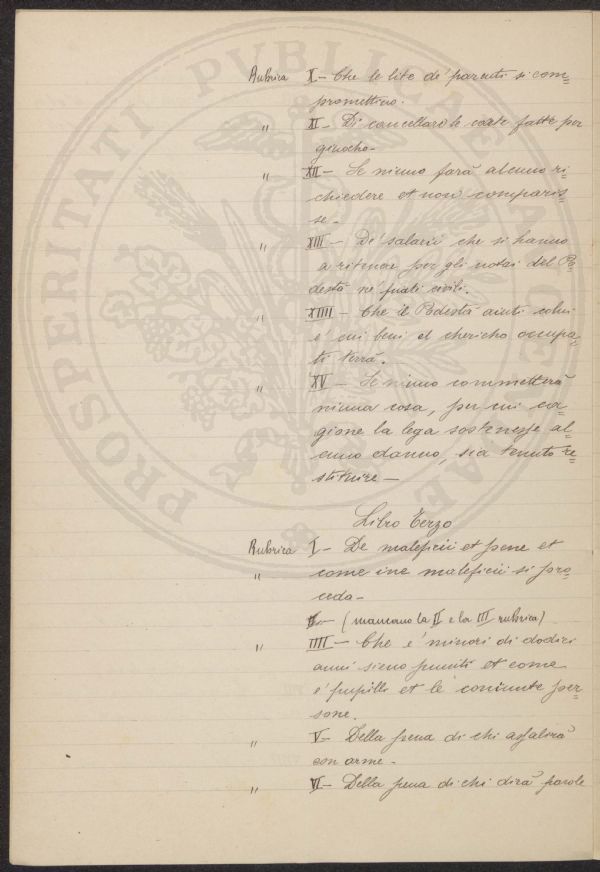 PROSPERITATI PVBLICAE AVGENDAE
Rubrica X – Che le lite de' parenti si com=
promettino.
" XI – Di cancellare le carte fatte per
giuocho –
" XII – Se niuno farà alcuno ri=
chiedere et non comparis=
se –
" XIII – De' salarii che si hanno
a ritenere per gli notai del Po=
destà ne' piati civili.
" XIIII – Che il Podestà aiuti colui
e' cui beni el chericho occupa=
ti terrà.
" XV – Se niuno commetterà
niuna cosa, per cui ca=
gione la lega sostenesse al=
cuno danno, sia tenuto re=
stituire –
Libro Terzo
Rubrica I – De maleficii et pene et
" come ine maleficii si pro=
ceda –
(mancano la II e la III rubrica)
" IIII – Che e' minori di dodici
anni sieno puniti et come
e' pupilli et le coniunte per=
sone.
" V – Della pena di chi assalirà
con arme –
" VI – Della pena di chi dirà parole